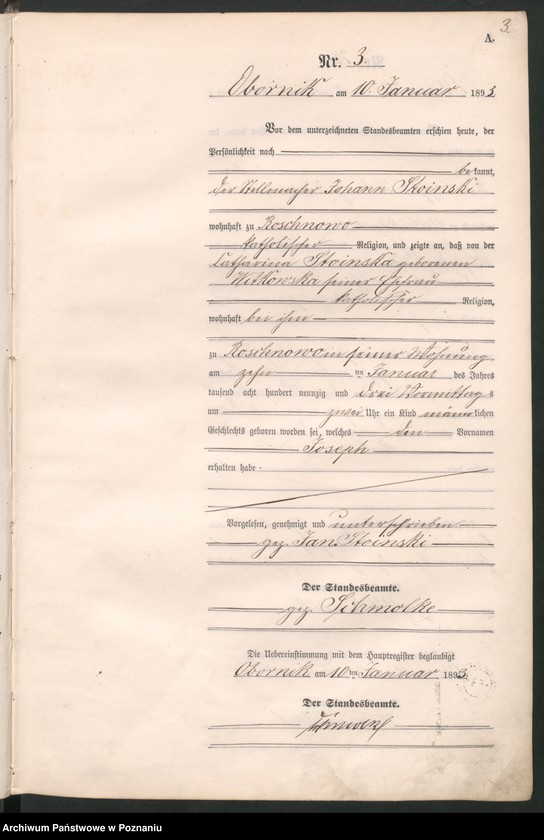 3.
A.
Nr. 3.
Obornik am 10. Januar 1893
Vor dem unterzeichneten Standesbeamten erschien heute, der
Persönlichkeit nach
bekannt,
der Stellmacher Johann Stoinski
wohnhaft zu Roschnowo
katholischer Religion, und zeigte an, daß von der
Catharina Stoinska geborenen
Witkowska seiner Ehefrau
katholischer Religion,
wohnhaft bei ihm
zu Roschnowo in seiner Wohnung
am zehn ten Januar des Jahres
tausend acht hundert neunzig und drei Vormittags
um zwei Uhr ein Kind männlichen
Geschlechts geboren worden sei, welches den Vornamen
Joseph
erhalten habe.
Vorgelesen, genehmigt und unterschrieben
gez. Jan Stoinski
Der Standesbeamte.
gez. Schmolke
Die Uebereinstimmung mit dem Hauptregister beglaubigt
Obornik am 10ten Januar 1893.
Der Standesbeamte.
Schmolke
Archiwum Państwowe w Poznaniu